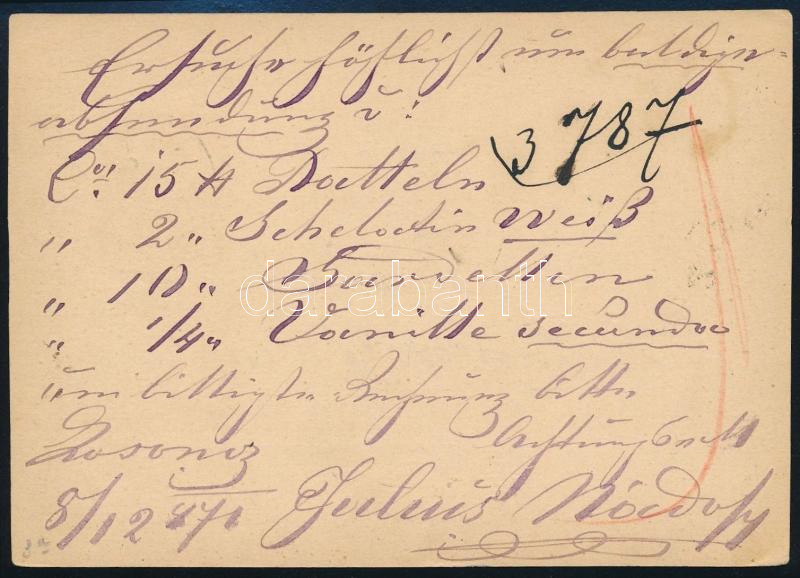 Ersuche höflichst um baldige
absendung v:
3787
15 ℔ Datteln
„ 2 „ Schelatin weiß
„ 10 „ Sardellen
„ 1/4 „ Vanille secunda
um billigste Rechnung bitte
Achtungsvoll
Losoncz
8/12 871
Julius
darabanth